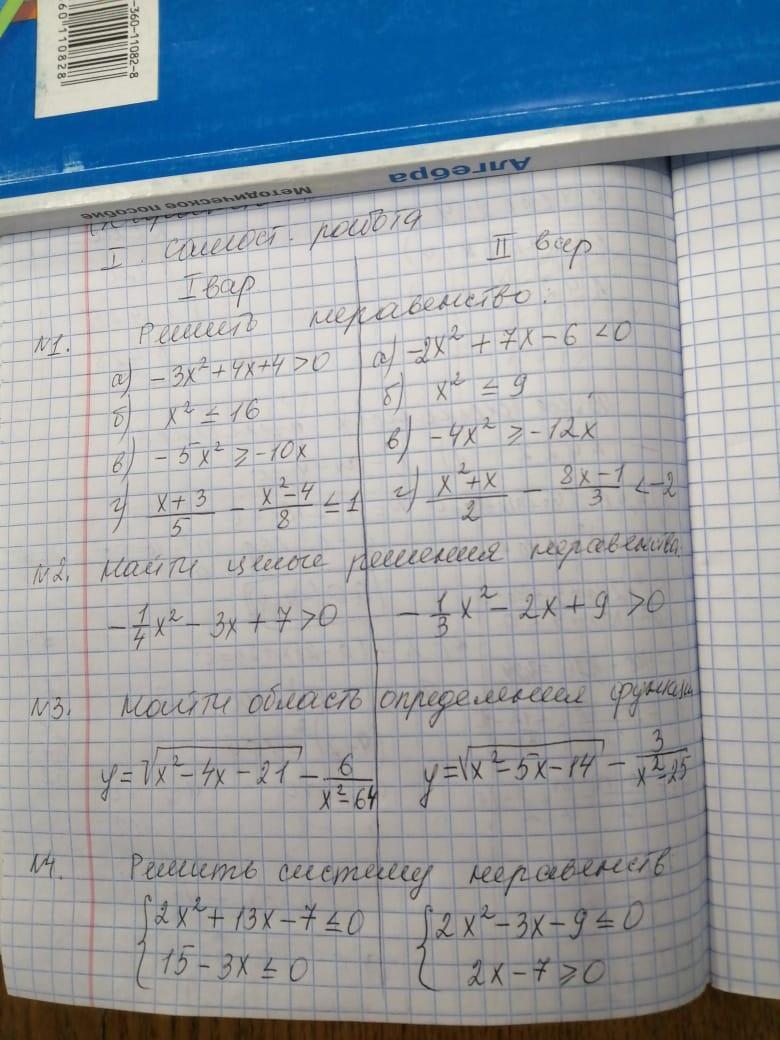 -360-11082-8
60110828
Алгебра
Методическое пособие
I. Самост. работа
I вар II вар
N1. Решить неравенство:
а) -3x²+4x+4>0 а) -2x²+7x-6<0
б) x² ≤ 16 б) x² ≤ 9
в) -5x² ≥ -10x в) -4x² ≥ -12x
г) (x+3)/5 - (x²-4)/8 ≤ 1 г) (x²+x)/2 - (8x-1)/3 < -2
N2. Найти целые решения неравенства
-1/4x² - 3x + 7 > 0 -1/3x² - 2x + 9 > 0
N3. Найти область определения функции
y=√(x²-4x-21) - 6/(x²-64) y=√(x²-5x-14) - 3/(x²-25)
N4. Решить систему неравенств
{2x²+13x-7≤0 {2x²-3x-9≤0
15-3x≤0 2x-7≥0